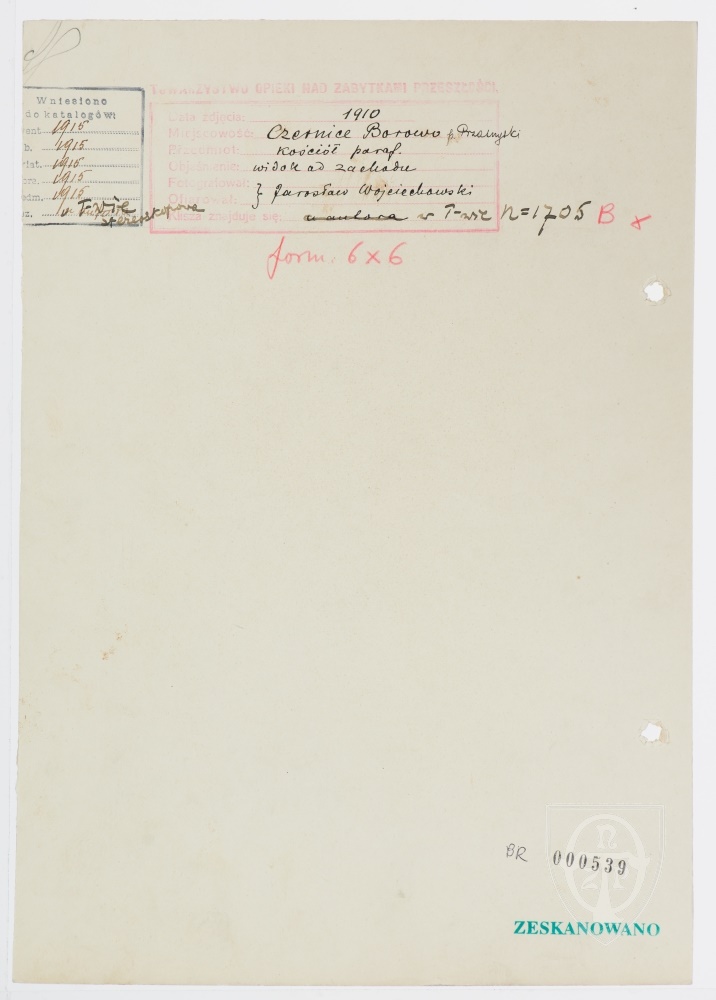 Wniesiono
do katalogów:
1915
1915
1915
1915
1915
T-wie
stereoskopowe
TOWARZYSTWO OPIEKI NAD ZABYTKAMI PRZESZŁOŚCI.
Data zdjęcia: 1910
Miejscowość: Czernice Borowe p. Przasnyski
Przedmiot: Kościół paraf.
Objaśnienie: widok od zachodu
Fotografował: } Jarosław Wojciechowski
Ofiarował:
Klisza znajduje się: u autora w T-wie N=1705 B x
form. 6x6
BR 000539
ZESKANOWANO